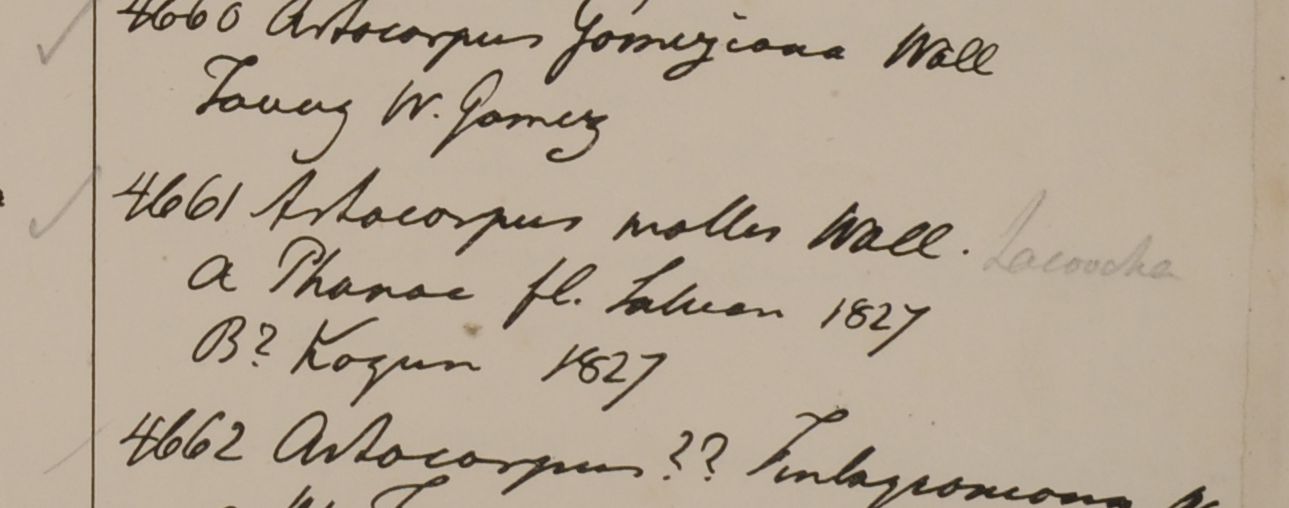 4660 Artocarpus Gomeziana Wall
Tavoy W. Gomez
4661 Artocarpus mollis Wall. Lacoocha
a Phanoe fl. Saluen 1827
B? Kogun 1827
4662 Artocarpus ?? Finlaysoniana